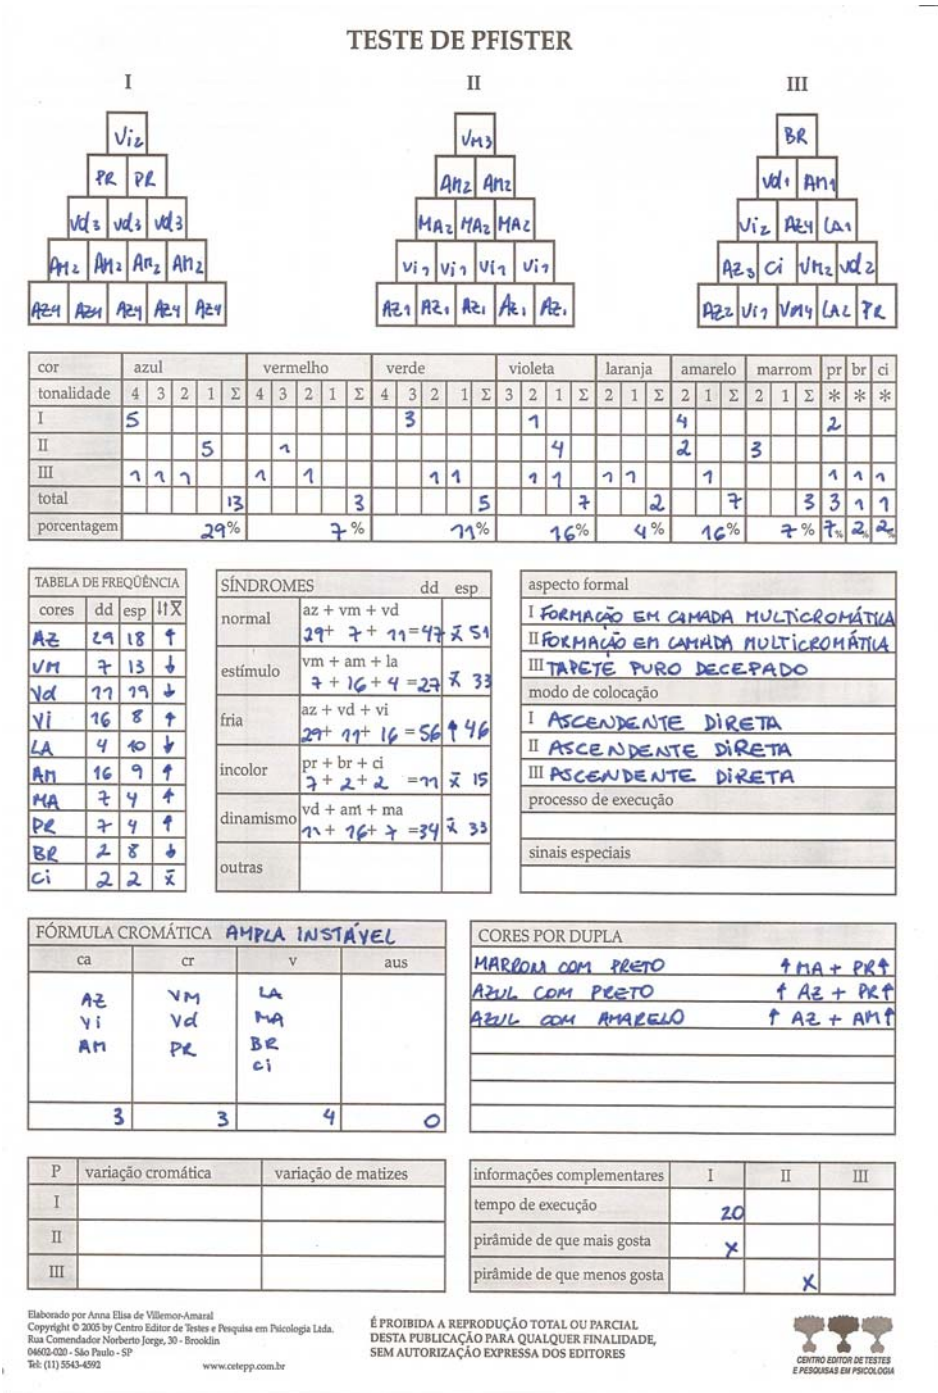 TESTE DE PFISTER
I II III
Vi2 VM3 BR
PR PR AM2 AM2 Vd1 AM1
Vd3 Vd3 Vd3 MA2 MA2 MA2 Vi2 AZ4 LA1
AM2 AM2 AM2 AM2 Vi1 Vi1 Vi1 Vi1 AZ3 Ci VM2 Vd2
AZ4 AZ4 AZ4 AZ4 AZ4 AZ1 AZ1 AZ1 AZ1 AZ1 AZ2 Vi1 VM4 LA2 PR
cor azul vermelho verde violeta laranja amarelo marrom pr br ci
tonalidade 4 3 2 1 Σ 4 3 2 1 Σ 4 3 2 1 Σ 3 2 1 Σ 2 1 Σ 2 1 Σ 2 1 Σ * * *
I 5 3 1 4 2
II 5 1 4 2 3
III 1 1 1 1 1 1 1 1 1 1 1 1 1 1 1
total 13 3 5 7 2 7 3 3 1 1
porcentagem 29% 7% 11% 16% 4% 16% 7% 7% 2% 2%
TABELA DE FREQÜÊNCIA
cores dd esp ↓↑X̄
AZ 29 18 ↑
VM 7 13 ↓
Vd 11 19 ↓
Vi 16 8 ↑
LA 4 10 ↓
AM 16 9 ↑
MA 7 4 ↑
PR 7 4 ↑
BR 2 8 ↓
Ci 2 2 x̄
SÍNDROMES dd esp
normal az + vm + vd
29+ 7 + 11 =47 x̄ 51
estímulo vm + am + la
7 + 16 + 4 =27 x̄ 33
fria az + vd + vi
29+ 11+ 16 =56 ↑ 46
incolor pr + br + ci
7 + 2 + 2 =11 x̄ 15
dinamismo vd + am + ma
11 + 16+ 7 =34 x̄ 33
outras
aspecto formal
I FORMAÇÃO EM CAMADA MULTICROMÁTICA
II FORMAÇÃO EM CAMADA MULTICROMÁTICA
III TAPETE PURO DECEPADO
modo de colocação
I ASCENDENTE DIRETA
II ASCENDENTE DIRETA
III ASCENDENTE DIRETA
processo de execução
sinais especiais
FÓRMULA CROMÁTICA AMPLA INSTÁVEL
ca cr v aus
AZ VM LA
Vi Vd MA
AM PR BR
Ci
3 3 4 0
CORES POR DUPLA
MARROM COM PRETO ↑ MA + PR↑
AZUL COM PRETO ↑ AZ + PR↑
AZUL COM AMARELO ↑ AZ + AM↑
P variação cromática variação de matizes
I
II
III
informações complementares I II III
tempo de execução 20
pirâmide de que mais gosta X
pirâmide de que menos gosta X
Elaborado por Anna Elisa de Villemor-Amaral
Copyright © 2005 by Centro Editor de Testes e Pesquisa em Psicologia Ltda.
Rua Comendador Norberto Jorge, 30 - Brooklin
04602-020 - São Paulo - SP
Tel: (11) 5543-4592 www.cetepp.com.br
É PROIBIDA A REPRODUÇÃO TOTAL OU PARCIAL
DESTA PUBLICAÇÃO PARA QUALQUER FINALIDADE,
SEM AUTORIZAÇÃO EXPRESSA DOS EDITORES
CENTRO EDITOR DE TESTES
E PESQUISAS EM PSICOLOGIA